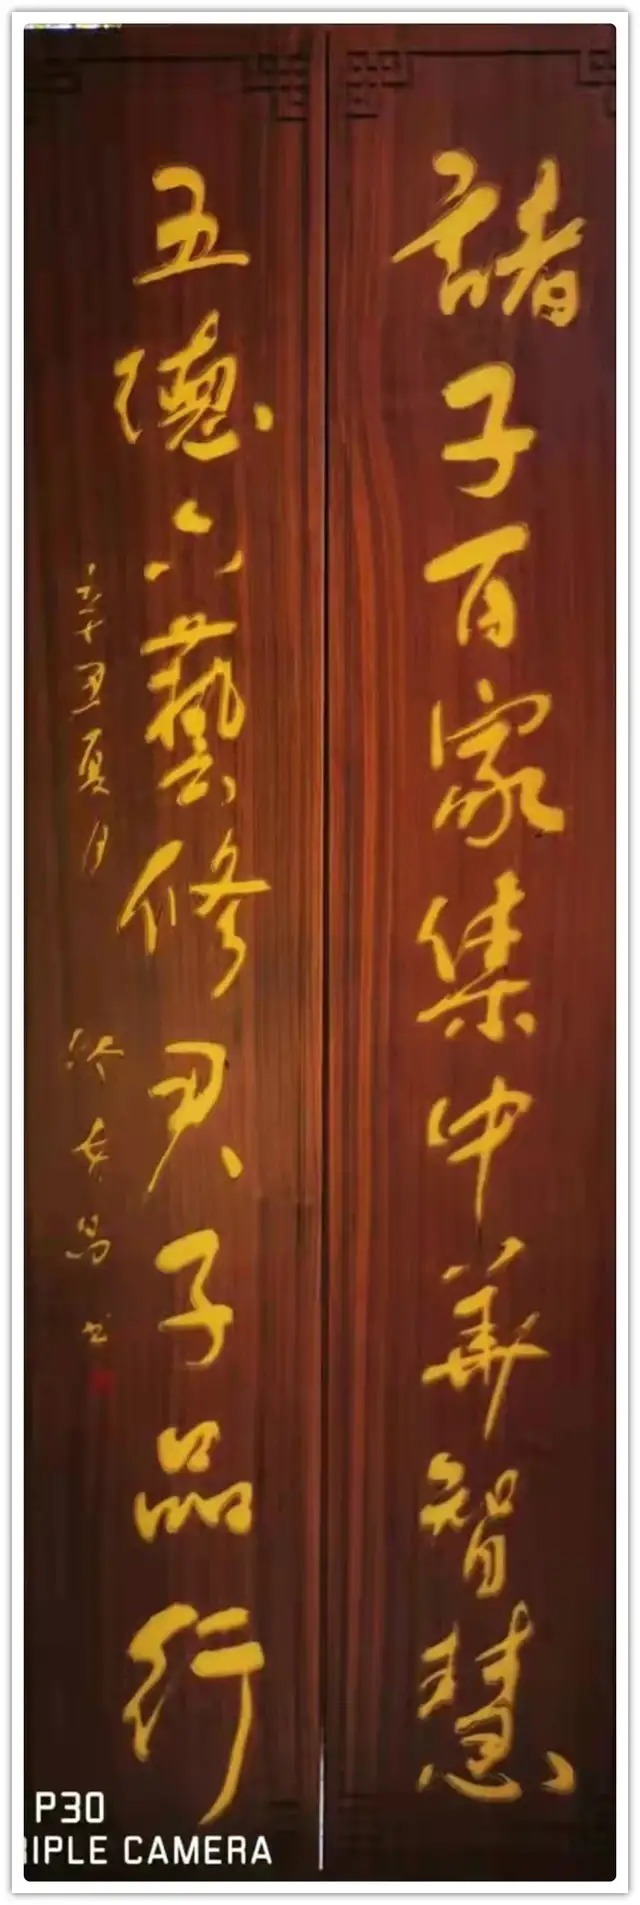 諸子百家集中華智慧
五德六藝修君子品行
辛丑夏月
昌书
P30
RIPLE CAMERA